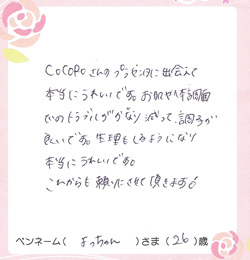 COCOPOさんのプラセンタに出会えて
本当にうれしいです。お肌や体調面
でのトラブルがかなり減って、調子が
良いです。生理もくるようになり
本当にうれしいです。
これからも頼りにさせて頂きます
ペンネーム( よっちゃん )さま(26)歳